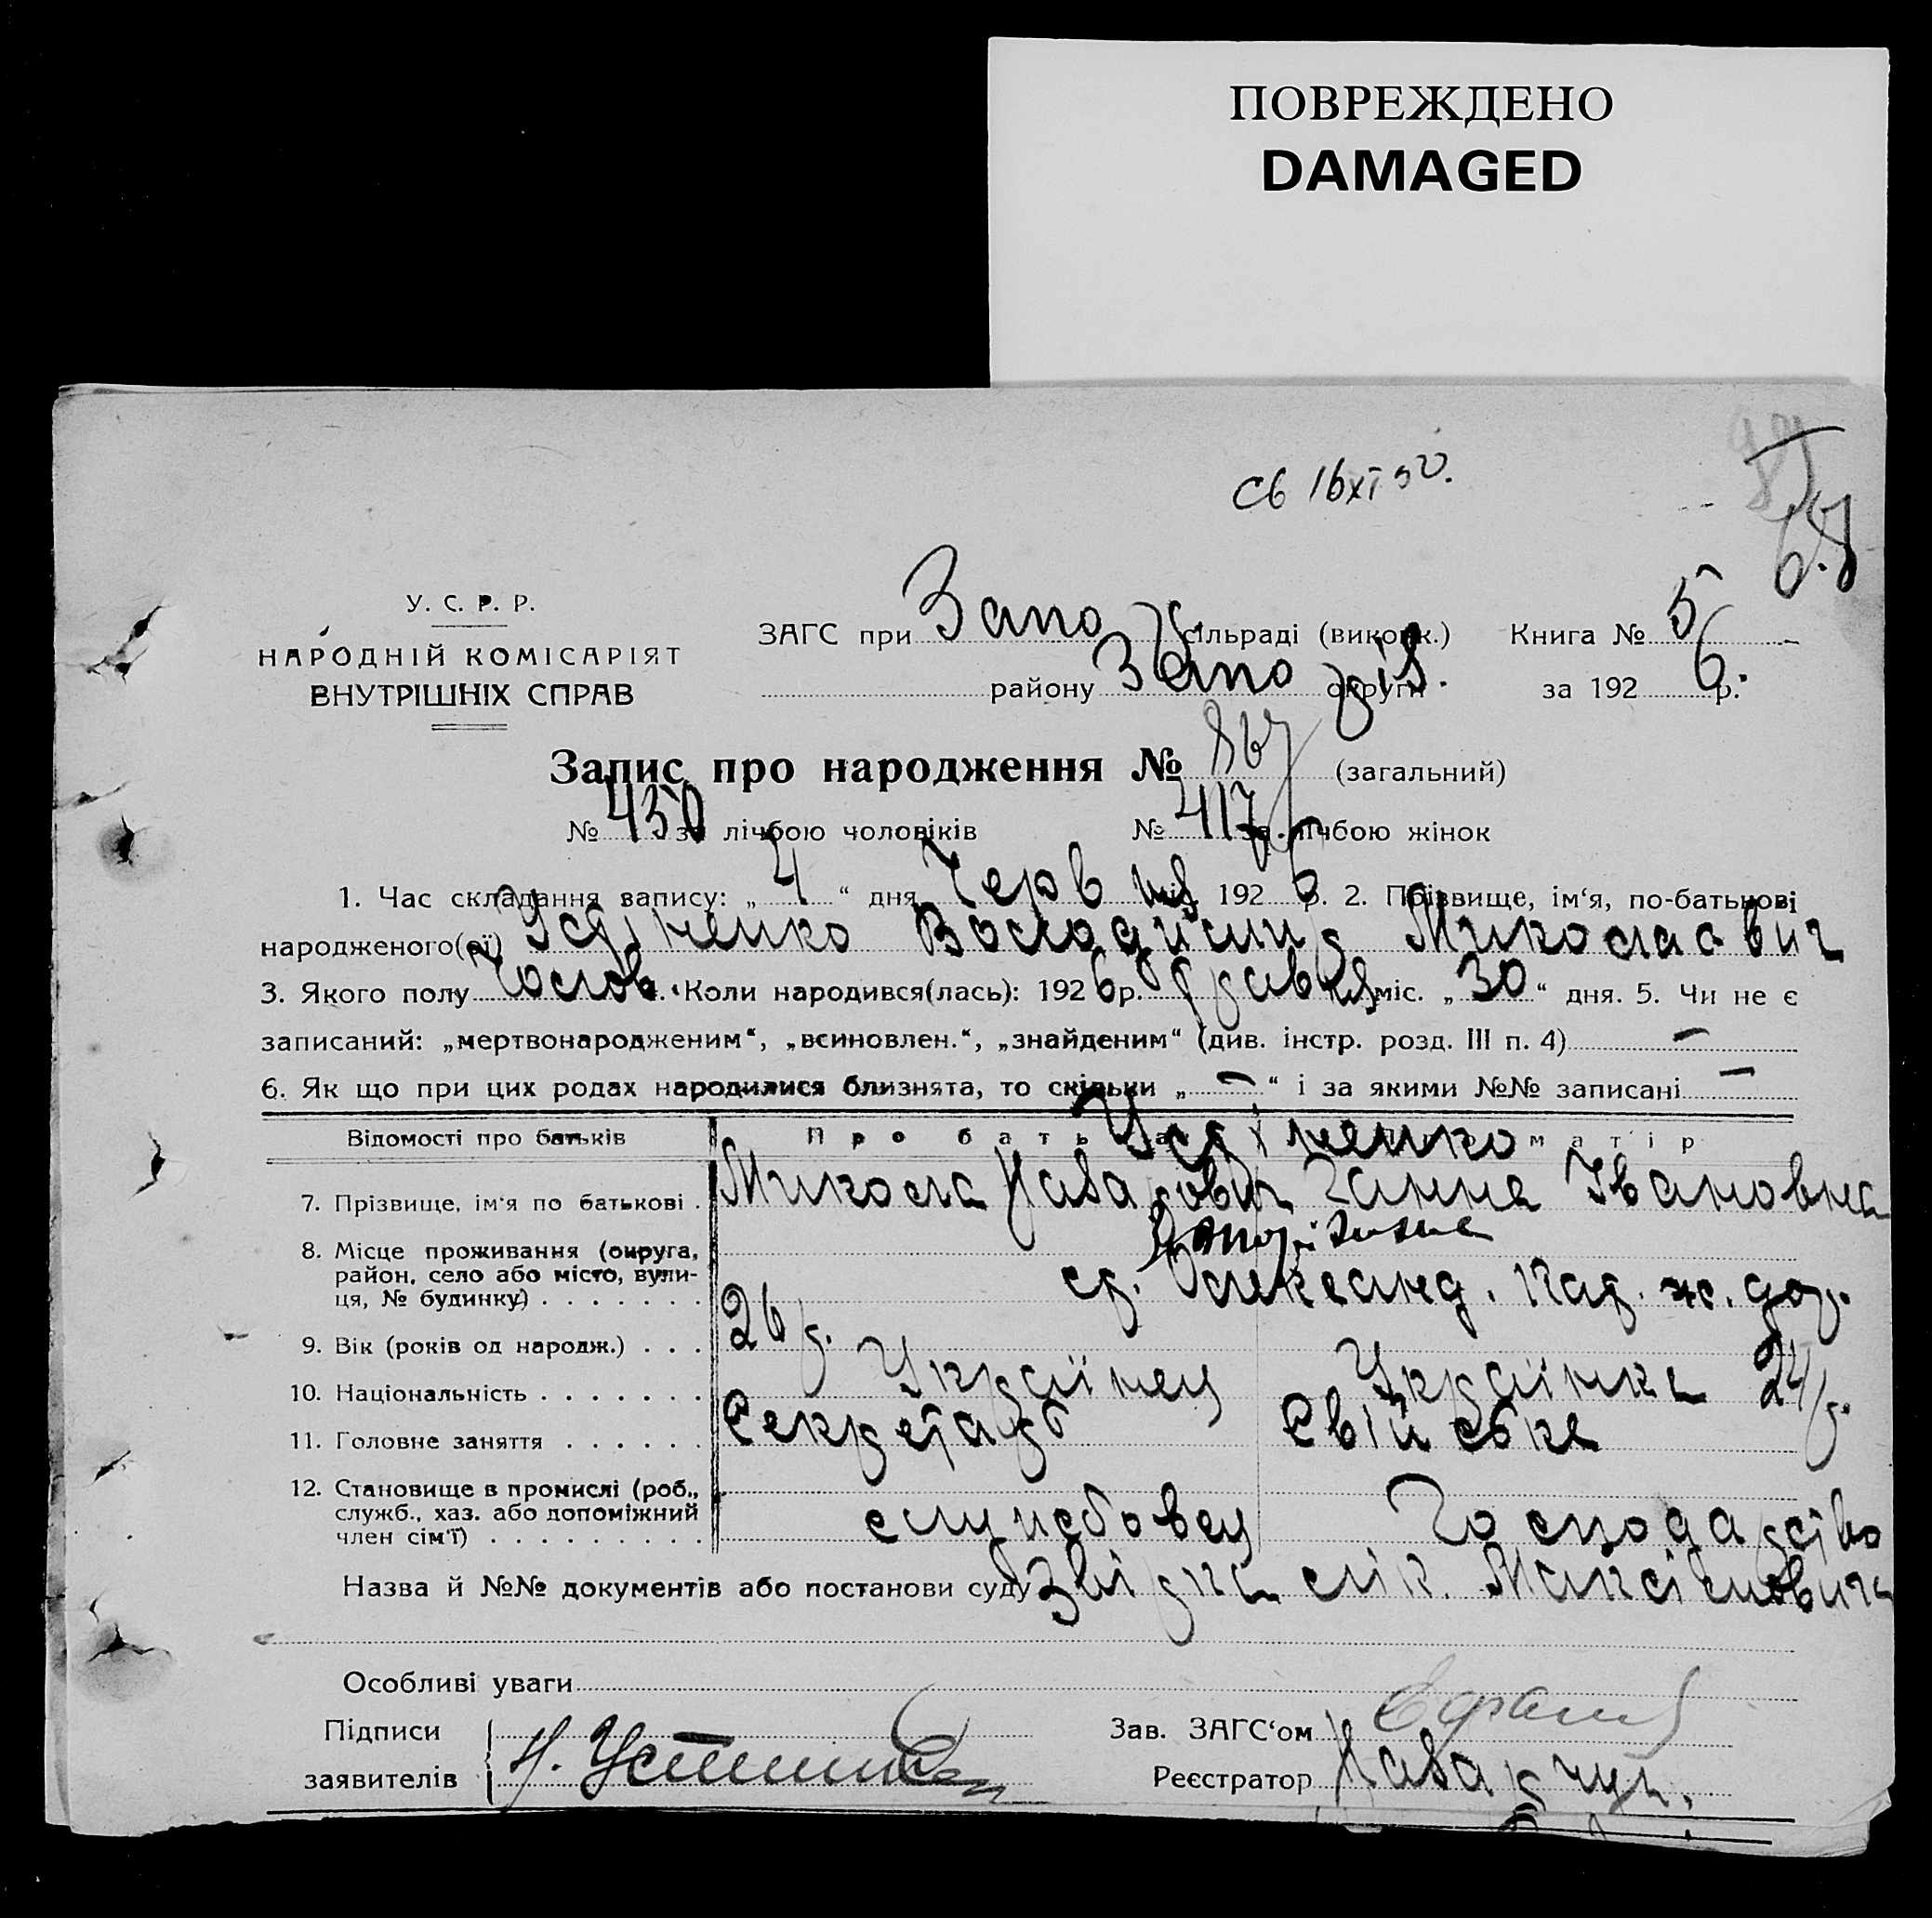 ПОВРЕЖДЕНО
DAMAGED
У. С. Р. Р.
НАРОДНІЙ КОМІСАРІЯТ
ВНУТРІШНІХ СПРАВ
ЗАГС при Запо сільраді (виконк.) Книга № 5
району Запоріз. округи за 1926 р.
Запис про народження № 867 (загальний)
№ 450 за лічбою чоловіків № 417 за лічбою жінок
1. Час складання запису: „4“ дня Червня міс. 1926 р. 2. Прізвище, ім‘я, по-батькові
народженого(ої) Устіменко Володимир Миколаевич
3. Якого полу Чолов. 4. Коли народився(лась): 1926 р. травня міс. „30“ дня. 5. Чи не є
записаний: „мертвонародженим“, „всиновлен.“, „знайденим“ (див. інстр. розд. III п. 4) —
6. Як що при цих родах народилися близнята, то скільки „—“ і за якими №№ записані —
Відомості про батьків Про батька Устіменко матір
7. Прізвище, ім‘я по батькові . Микола Назарович Ганна Івановна
8. Місце проживання (округа, район, село або місто, вулиця, № будинку) . . . . . . . Запоріжжя
ст. Олександ. Кат. ж. дор.
9. Вік (років од народж.) . . . 26 р. 24 р.
10. Національність . . . . . . . Українец Українка
11. Головне заняття . . . . . . Секретарь Свійське
12. Становище в промислі (роб., служб., хаз. або допоміжний член сім‘ї) . . . . . . . . . службовец Господарство
Назва й №№ документів або постанови суду
Особливі уваги
Підписи
заявителів Н. Устименко
Зав. ЗАГС‘ом
Реєстратор